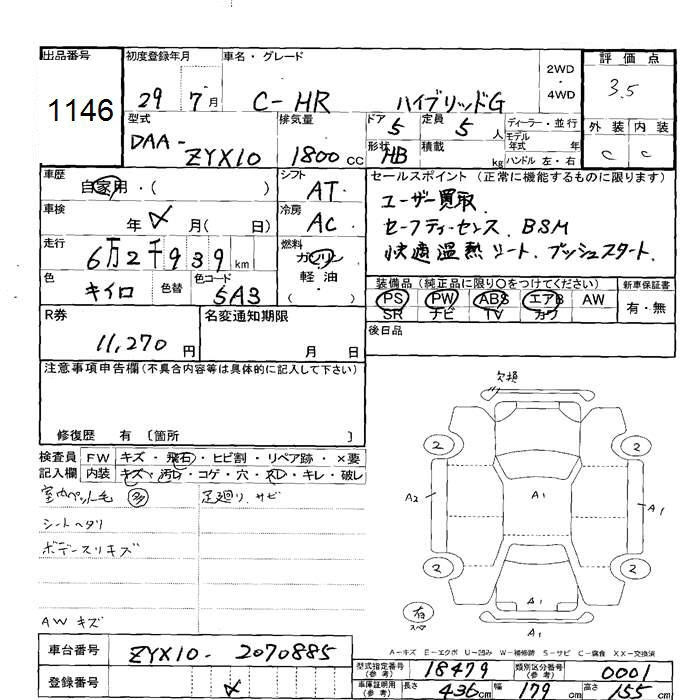 出品番号
1146
初度登録年月
29 7月
車名・グレード
C-HR ハイブリッドG
2WD
・
4WD
評価点
3.5
外装 内装
C C
型式
DAA-
ZYX10
排気量
1800CC
ドア 5
定員 5人
形状 HB
積載 kg
ディーラー・並行
モデル年式
ハンドル 左・右
車歴
自家用・( )
シフト
AT
車検
年 月( 日)
冷房
AC
走行
6万2千939km
燃料
ガソリン
軽油
( )
色
キイロ
色替
色コード
5A3
セールスポイント(正常に機能するものに限ります)
ユーザー買取.
セーフティーセンス. BSM
快適温熱シート. プッシュスタート.
装備品(純正品に限り○をつけてください)
PS PW ABS エアB AW
SR ナビ TV カワ
新車保証書
有・無
R券
11,270円
名変通知期限
月 日
後日品
注意事項申告欄(不具合内容等は具体的に記入して下さい)
修復歴 有 〔箇所 〕
検査員記入欄
FW キズ・飛石・ヒビ割・リペア跡・×要
内装 キズ・汚レ・コゲ・穴・スレ・キレ・破レ
室内ペット毛 多
足廻り.サビ
シートヘタリ
ボデースリキズ
AWキズ
欠損
2 2
A2 A1 A1
2 2
A1
A1
有
スペア
A-キズ E-エクボ U-凹み W-補修跡 S-サビ C-腐食 XX-交換済
車台番号
ZYX10-2070885
登録番号
型式指定番号(参考)
18479
類別区分番号(参考)
0001
車庫証明用(参考)
長さ 436cm 幅 179cm 高さ 155cm